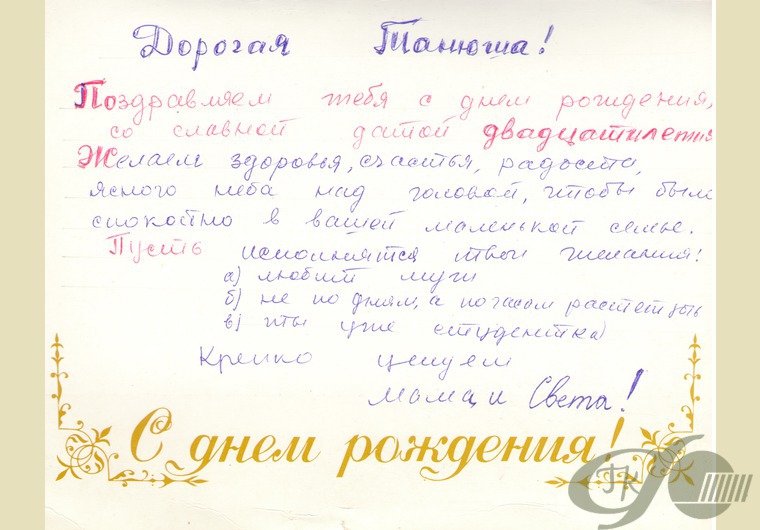 Дорогая Танюша!
Поздравляем тебя с днем рождения,
со славной датой двадцатилетия
Желаем здоровья, счастья, радости,
ясного неба над головой, чтобы было
спокойно в вашей маленькой семье.
Пусть исполнятся твои желания:
а) любит муж
б) не по дням, а по часам растет дочь
в) ты уже студентка)
Крепко целуем
мама и Света!
С днем рождения!